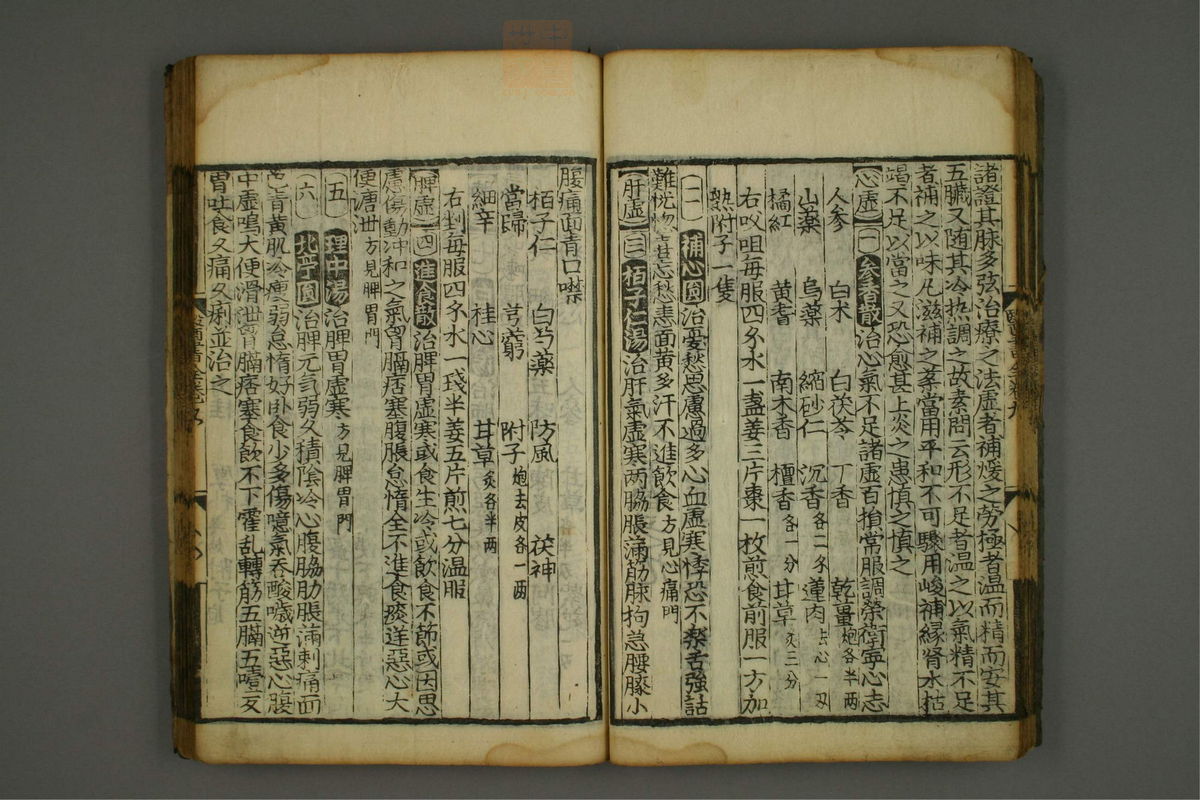 諸證其脉多弦治療之法虚者補煖之勞極者温而精而安其
五臟又随其冷热調之故素問云形不足者温之以氣精不足
者補之以味凢滋補之藥當用平和不可驟用峻補縁腎水枯
竭不足以當之又恐愈甚上炎之患慎之慎之
心虚 一 参香散 治心氣不足諸虚百損常服調榮衛寧心志
人参 白术 白茯苓 丁香 乾薑炮各半两
山薬 烏藥 縮砂仁 沉香各二分 蓮肉去心一两
橘紅 黄耆 南木香 檀香各一分 甘草炙三分
右㕮咀每服四分水一盞姜三片棗一枚煎食前服一方加
熟附子一隻
二 補心圎 治憂愁思慮過多心血虚寒悸恐不樂舌強話
難恍惚喜忘愁恚面黄多汗不進飲食方見心痛門
肝虚 三 栢子仁湯 治肝氣虚寒两脇脹滿筋脉拘急腰膝小
腹痛面青口噤
栢子仁 白芍藥 防風 茯神
當歸 芎藭 附子炮去皮各一两
細辛 桂心 甘草炙各半两
右剉每服四分水一琖半姜五片煎七分温服
脾虚 四 進食散 治脾胃虚寒或食生冷或飲食不節或因思
慮傷動冲和之氣胷膈痞塞腹脹怠惰全不進食痰逆惡心大
便溏泄方見脾胃門
五 理中湯 治脾胃虚寒方見脾胃門
六 北亭圎 治脾元氣弱久積陰冷心腹脇肋脹滿刺痛而
色青黄肌冷瘦弱怠惰好卧食少多傷噫氣吞酸噦逆惡心腹
中虚鳴大便滑泄胷膈痞塞食飲不下霍乱轉筋五膈五噎反
胃吐食久痛久痢並治之